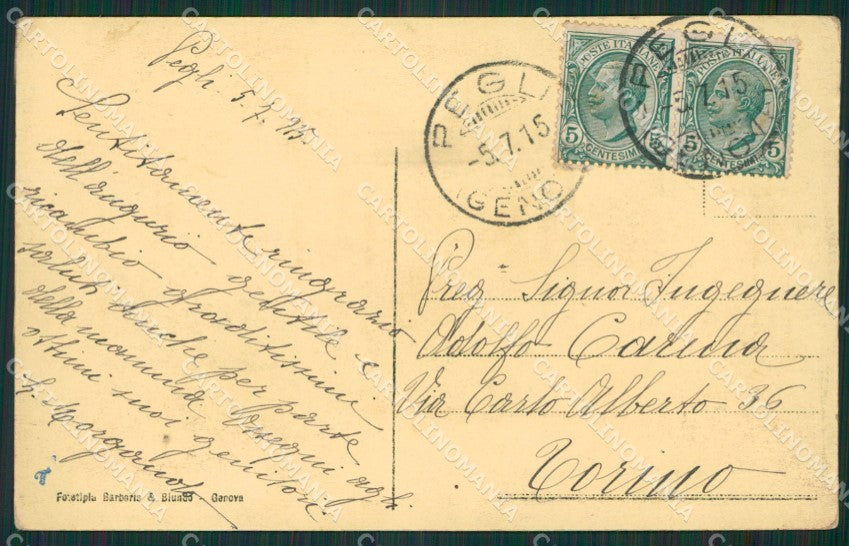 Pegli 5.7.915.
Sentitamente ringrazio
dell'augurio gentile e
ricambio graditissimi
saluti anche per parte
della mamma. Ossequi agli
ottimi suoi genitori
PEGLI
-5.7.15
(GENO
POSTE ITALIANE
5 5
CENTESIMI
POSTE ITALIANE
5 5
CENTESIMI
PEGLI
-5.7.15
Preg. Signor Ingegnere
Adolfo Carina
Via Carlo Alberto 36
Torino
Fototipia Barberis & Blundo - Genova
CARTOLINOMANIA